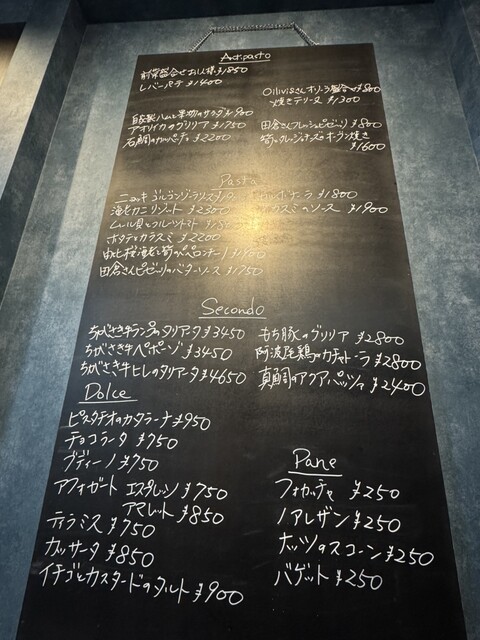 Antipasto
前菜盛合せ お1人様 ¥1850
レバーパテ ¥1400
自家製ハムと果物のサラダ ¥900
アオリイカのグリリア ¥1750
石鯛のカルパッチョ ¥2200
¥800
焼きテリーヌ ¥1300
田倉さんフレッシュピゼリー ¥800
オーブン焼き
¥1600
Pasta
ニョッキ ゴルゴンゾーラ
海老カニリゾット ¥2300
ムール貝とフルーツトマト
ホタテとカラスミ ¥2200
桜海老と筍のペペロンチーノ
田倉さんピゼリーのバターソース ¥1750
カルボナーラ ¥1800
のソース ¥1900
Secondo
ちがさき牛ランプのタリアータ ¥3450
ちがさき牛ペポーゾ ¥3450
ちがさき牛ヒレのタリアータ ¥4650
もち豚のグリリア ¥2800
阿波尾鶏のカチャトーラ ¥2800
真鯛のアクアパッツァ ¥2400
Dolce
ピスタチオのカタラーナ ¥950
チョコラータ ¥750
ブディーノ ¥750
アフォガート エスプレッソ ¥750
アマレット ¥850
ティラミス ¥750
カッサータ ¥850
イチゴとカスタードのタルト ¥900
Pane
フォカッチャ ¥250
ノアレザン ¥250
ナッツのスコーン ¥250
バゲット ¥250